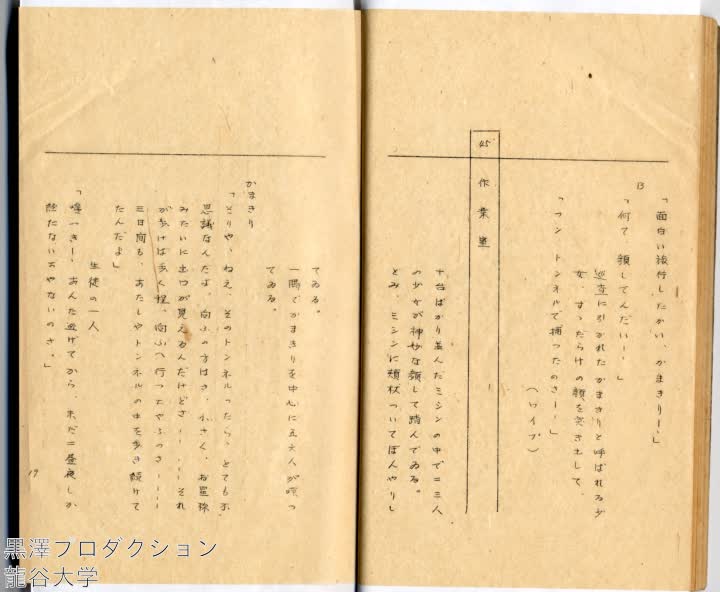 「面白い旅行したかい、かまきり！」
13
「何て 顔してんだい！」
巡査に引かれたかまきりと呼ばれる少
女、すったらけの顔を突き出して、
「フン トンネルで捕つたのさ！」
（ワイプ）
45 作業室
十台ばかり並んだミシンの中で二三人
の少女が神妙な顔して踏んでゐる。
とみ、ミシンに頬杖ついてぼんやりし
てゐる。
一隅でかまきりを中心に五六人が喋つ
てゐる。
かまきり
「そりや、ねえ、そのトンネルったら、とても不
思議なんだよ。向ふの方はさ、小さく、お星様
みたいに出口が見えるんだけどさ・・・・それ
が歩けば歩く程、向ふへ行つちやふのさ・・・・
三日間も、あたしやトンネルの中を歩き続けて
たんだよ」
生徒の一人
「嘘つき！ あんた逃げてから、まだ二昼夜しか
経たないぢやないのさ。」
19
黒澤プロダクション
龍谷大学